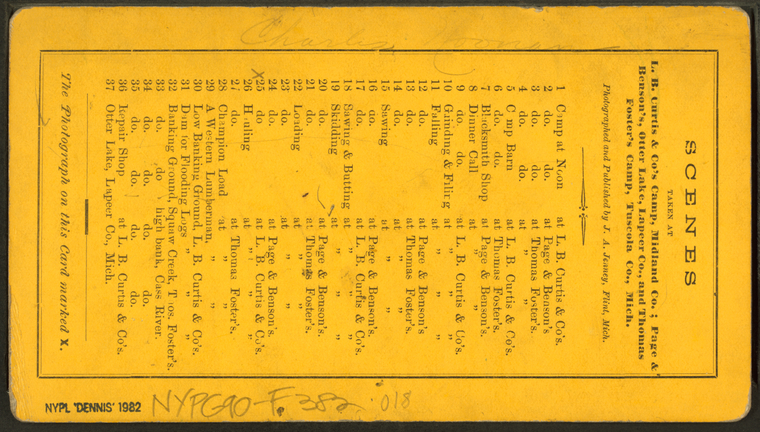 SCENES
TAKEN AT
L. B. Curtis & Co's Camp, Midland Co. ; Page &
Benson's, Otter Lake, Lapeer Co., and Thomas
Foster's Camp, Tuscola Co., Mich.
Photographed and Published by J. A. Jenney, Flint, Mich.
1 Camp at Noon at L. B. Curtis & Co's.
2 do. do. at Page & Benson's
3 do. do. at Thomas Foster's.
4 do. do. at „ „
5 Camp Barn at L. B. Curtis & Co's.
6 do. do. at Thomas Foster's.
7 Blacksmith Shop at Page & Benson's.
8 Dinner Call „ „ „
9 do. do. at L. B. Curtis & Co's.
10 Grinding & Filing „ „ „
11 Falling at „ „ „
12 do. at Page & Benson's
13 do. at Thomas Foster's.
14 do. at „ „
15 Sawing at „ „
16 do. at Page & Benson's.
17 do. at L. B. Curtis & Co's.
18 Sawing & Butting „ „ „
19 Skidding at „ „ „
20 do. at Page & Benson's.
21 do. at Thomas Foster's.
22 Loading at „ „
23 do. at „ „
24 do. at Page & Benson's.
x25 do at L. B. Curtis & Co's.
26 Hauling at „ „ „
27 do. at Thomas Foster's.
28 Champion Load at „ „
29 A Western Lumberman, „ „
30 Low Banking Ground, L. B. Curtis & Co's.
31 Dam for Flooding Logs „ „ „
32 Banking Ground, Squaw Creek, Thos. Foster's.
33 do. do high bank, Cass River.
34 do. do. do. do.
35 do. do. do. do.
36 Repair Shop at L. B. Curtis & Co's.
37 Otter Lake, Lapeer Co., Mich.
The Photograph on this Card marked x.
NYPL 'DENNIS' 1982 NYPG90-F. 382 .018